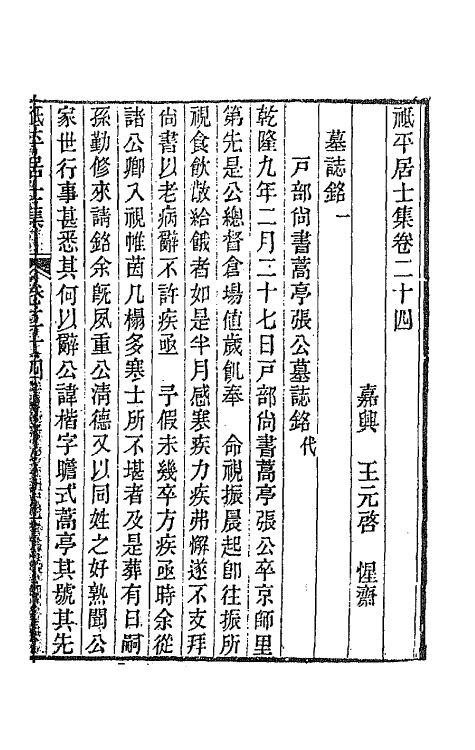 祗平居士集卷二十四
嘉興 王元啓 惺齋
墓誌銘一
戸部尚書蒿亭張公墓誌銘代
乾隆九年二月二十七日戸部尚書蒿亭張公卒京師里
第先是公總督倉塲値歲飢奉 命視振晨起卽往振所
視食飲啟給餓者如是半月感寒疾力疾弗懈遂不支拜
尚書以老病辭不許疾亟 予假未幾卒方疾亟時余從
諸公卿入視帷茵几榻多寒士所不堪者及是葬有日嗣
孫勤修來請銘余旣夙重公清德又以同姓之好熟聞公
家世行事甚悉其何以辭公諱楷字瞻式蒿亭其號其先
祗平居士集